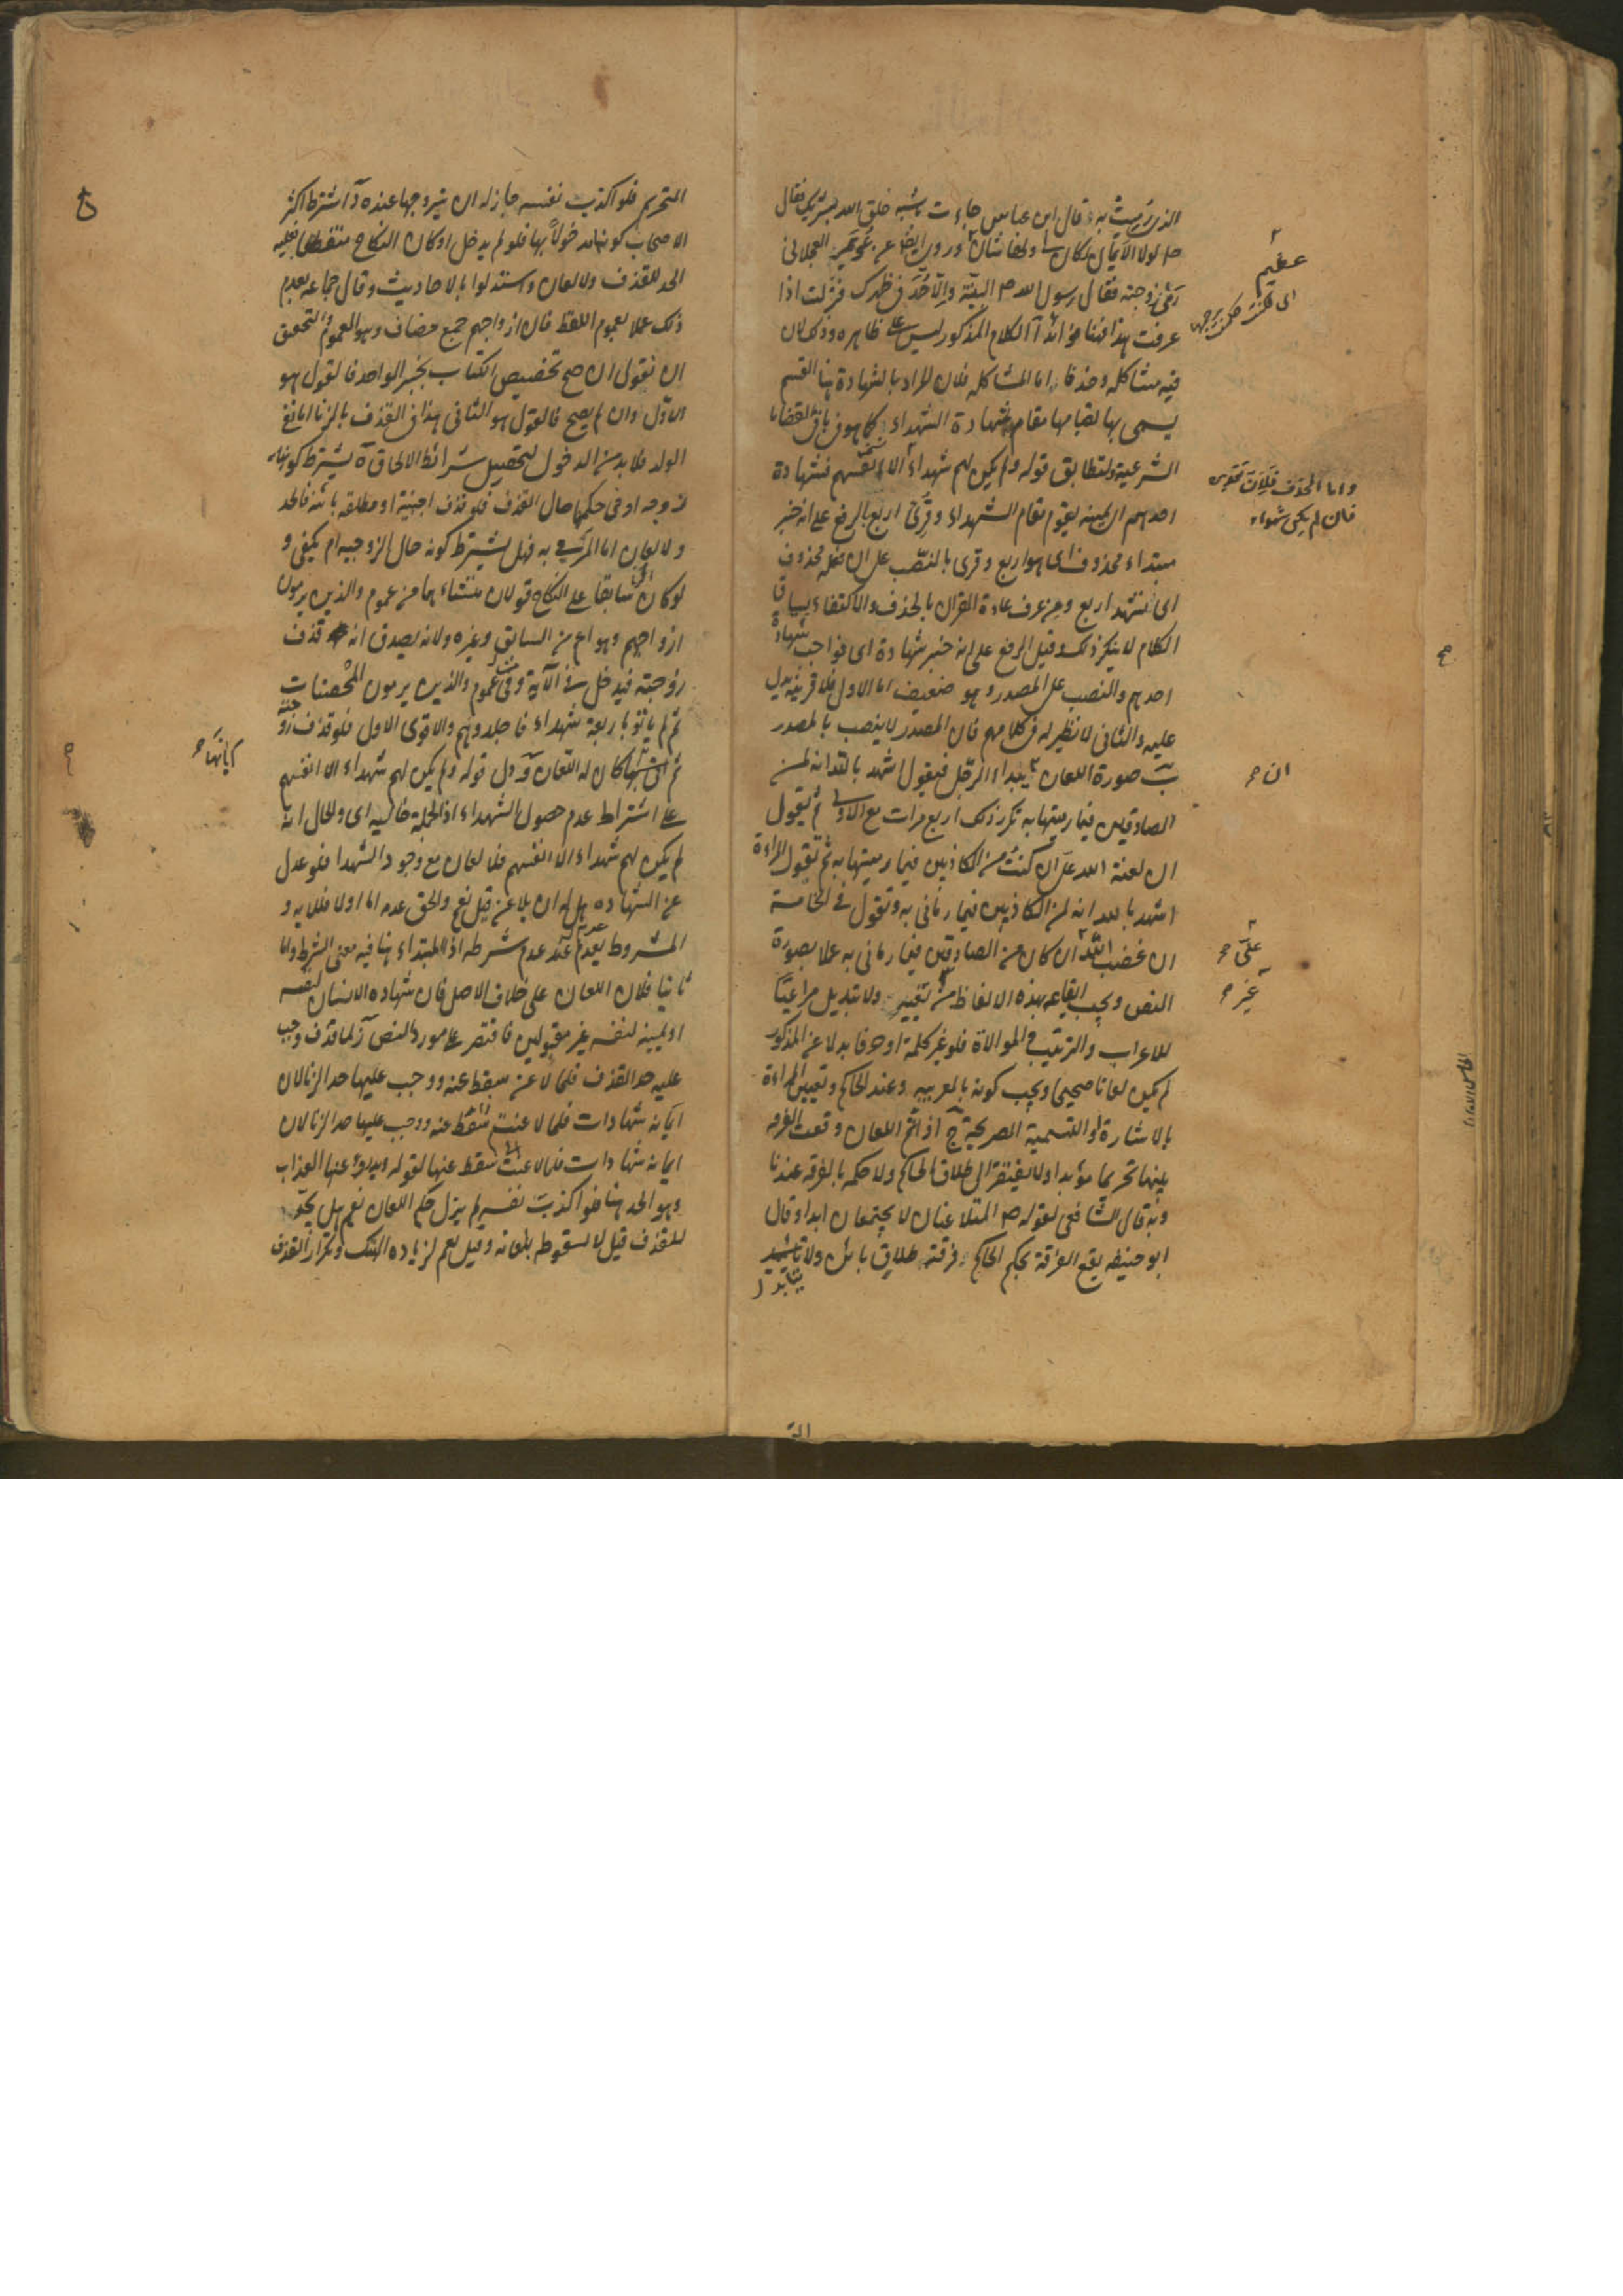 الذى رميت به قال ابن عباس جاءت باشبه خلق الله بشريك فقال
ص لولا الايمان لكان لى ولها شان وروى ايضا عن عويمر العجلانى
رمى زوجته فقال رسول الله ص البينة والا حد فى ظهرك فنزلت اذا
عرفت هذا فهنا فوائد آ الكلام المذكور ليس على ظاهره وذلك لان
فيه مشاكلة وحذفا اما المشاكله فلان المراد بالشهادة هنا القسم
يسمى بها لقيامها مقام شهادة الشهداء كما هو فى باقى القضايا
الشرعية ولتطابق قوله ولم يكن لهم شهداء الا انفسهم فشهادة
احدهم اى يمينه يقوم مقام الشهداء وقرئ اربع بالرفع على انه خبر
مبتداء محذوف اى هو اربع وقرى بالنصب على ان فعله محذوف
اى نشهد اربع ومن عرف عادة القران بالحذف والاكتفاء بسياق
الكلام لا ينكر ذلك وقيل الرفع على انه خبر شهادة اى فواجب شهادة
احدهم والنصب على المصدر وهو ضعيف اما الاول فلا قرينة يدل
عليه والثانى لا نظير له فى كلامهم فان المصدر لا ينصب بالمصدر
ب صورة اللعان يبداء الرجل فيقول اشهد بالله انه لمن
الصادقين فيما رميتها به تكرر ذلك اربع مرات مع الاولى ثم يقول
ان لعنة الله على ان كنت من الكاذبين فيما رميتها به ثم تقول المراءة
اشهد بالله انه لمن الكاذبين فيما رمانى به وتقول فى الخامسة
ان غضب الله ان كان من الصادقين فيما رمانى به عملا بصورة
النص ويجب ايقاعه بهذه الالفاظ من تغيير ولا تبديل مراعيا
للاعراب والترتيب والموالاة فلو غير كلمة او حرفا بدلا عن المذكور
لم يكن لعانا صحيحا ويجب كونه بالعربيه وعند الحاكم وتعيين المراءة
بالاشارة او التسمية الصريحة ج اذا تم اللعان وقعت الفرقه
بينهما تحريما مؤبدا ولا يفتقر الى طلاق الحاكم ولا حكمه بالفرقه عندنا
وبه قال الشافعى لقوله ص المتلاعنان لا يجتمعان ابدا وقال
ابو حنيفه يقع الفرقة بحكم الحاكم فرقة طلاق بائن ولا
يتابد
عظيم
واما الحذف فلان تقديره
فان لم يكن شهداء
ان
على
غير
التحريم فلو اكذب نفسه جاز له ان يتزوجها عنده د اشترط اكثر
الاصحاب كونها مدخولا بها فلو لم يدخل او كان النكاح منقطعا فعليه
الحد للقذف ولا لعان واستدلوا بالاحاديث وقال جماعه بعدم
ذلك عملا بعموم اللفظ فان ازواجهم جمع مضاف وهو للعموم والتحقيق
ان نقول ان صح تخصيص الكتاب بخبر الواحد فالقول هو
الاول وان لم يصح فالقول هو الثانى هذا فى القذف بالزنا اما نفى
الولد فلا بد من الدخول لتحصيل شرائط الالحاق ه يشترط كونها
زوجه او فى حكمها حال القذف فلو قذف اجنبية او مطلقه بائنه فالحد
ولا لعان اما المرمى به فهل يشترط كونه حال الزوجيه ام يكفى و
لو كان سابقا على النكاح قولان منشاءهما من عموم والذين يرمون
ازواجهم وهو اعم من السابق وغيره ولانه يصدق انه قذف
زوجته فيدخل فى الآية ومن عموم والذين يرمون المحصنات
ثم لم ياتوا باربعة شهداء فاجلدوهم والاقوى الاول فلو قذف زوجته
ثم ابانها كان له اللعان و دل قوله ولم يكن لهم شهداء الا انفسهم
على اشتراط عدم حصول الشهداء اذ الجملة حاليه اى والحال انه
لم يكن لهم شهداء الا انفسهم فلا لعان مع وجود الشهدا فلو عدل
عن الشهاده هل له ان يلاعن قيل نعم والحق عدمه اما اولا فللايه و
المشروط يعدم عند عدم شرطه اذ المبتداء هنا فيه معنى الشرط واما
ثانيا فلان اللعان على خلاف الاصل فان شهاده الانسان لنفسه
او يمينه لنفسه غير مقبولين فاقتصر على مورد النص ز لما قذف وجب
عليه حد القذف فلما لاعن سقط عنه ووجب عليها حد الزنا لان
ايمانه شهادات فلما لاعنت سقط عنه ووجب عليها حد الزنا لان
ايمانه شهادات فلما لاعنت سقط عنها لقوله ويدرؤ عنها العذاب
وهو الحد هنا فلو اكذب نفسه لم يزل حكم اللعان نعم هل يحد
للقذف قيل لا لسقوطه بلعانه وقيل نعم لزياده الهتك وتكرار القذف
ابانها